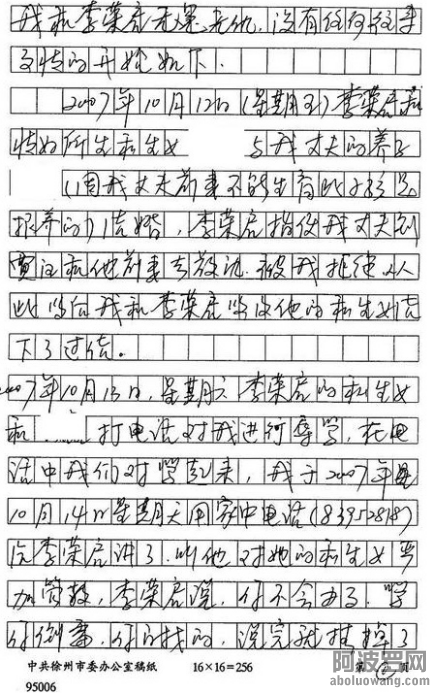 我和李荣启无冤无仇，没有任何往事
事情的开始如下．
2007年10月12日（星期五）李荣启和
情妇所生私生女 与我丈夫的养子
（因我丈夫前妻不能生育此子
抱养的）结婚，李荣启指使我丈夫到
贾汪和他前妻去 被我拒绝
此 我和李荣启 他的私生女结
下了过结。
2007年10月13日，星期六 李荣启的私生女
和……打电话对我进行辱骂，在电
话中我们对骂起来，我于2007年
10月14日星期天用家中电话（83952818）
给李荣启讲了．叫他对她的私生女严
加管教，李荣启说，你不会
你 ，你 ，说完就挂掉了
中共徐州市委办公室稿纸 16×16=256 第 页
95006
阿波罗网
aboluowang.com